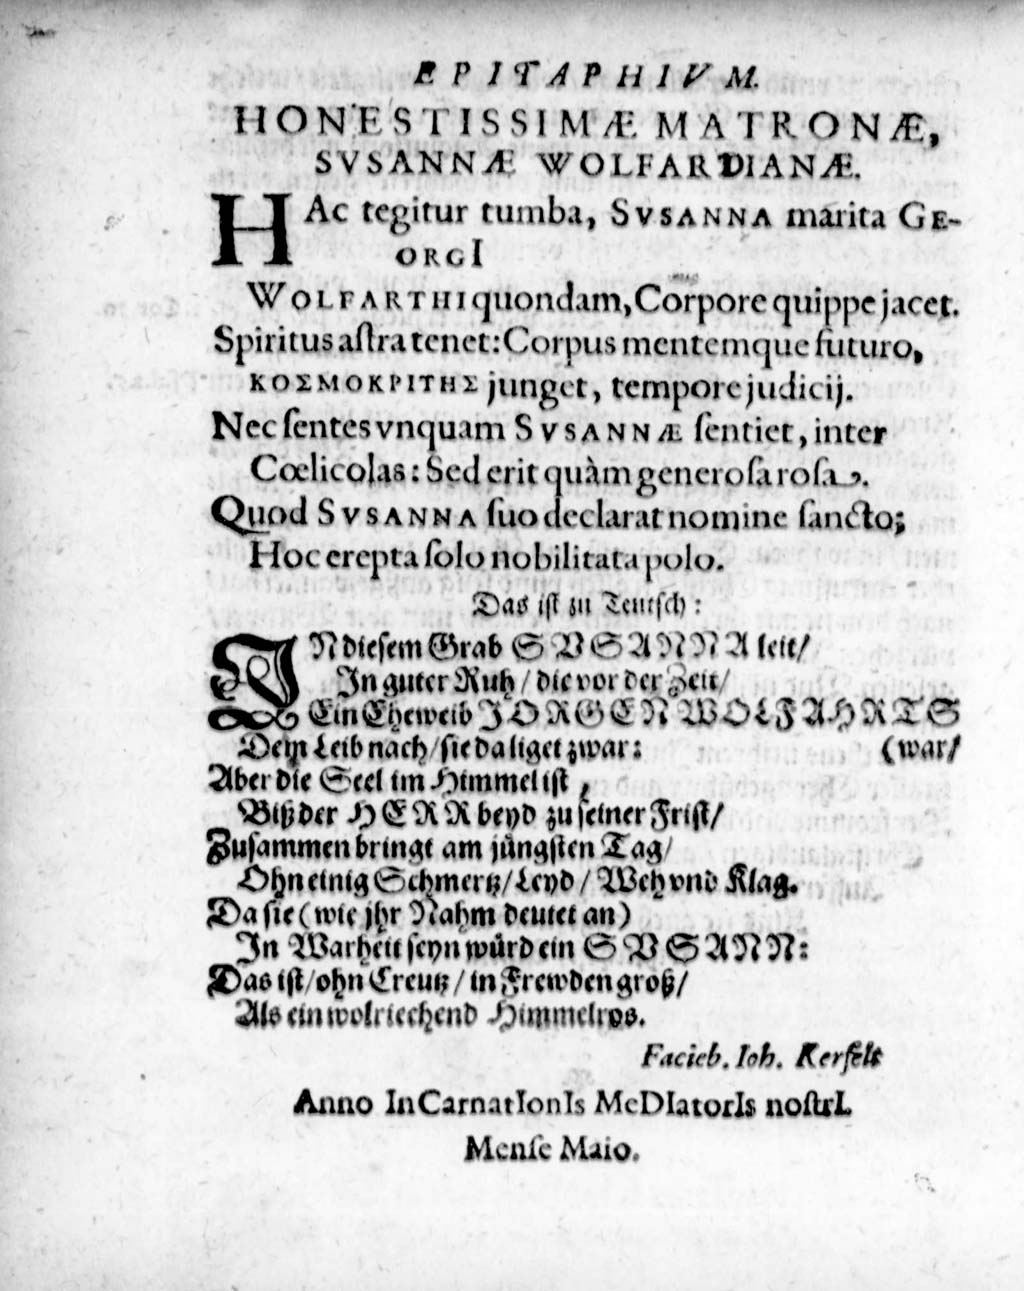 EPITAPHIVM.
HONESTISSIMÆ MATRONÆ,
SVSANNÆ WOLFARDIANÆ.
HAc tegitur tumba, SVSANNA marita GE-
ORGI
WOLFARTHI quondam, Corpore quippe jacet.
Spiritus aſtra tenet: Corpus mentemque futuro,
ΚΟΣΜΟΚΡΙΤΗΣ junget, tempore judicij.
Nec ſentes vnquam SVSANNÆ ſentiet, inter
Cœlicolas: Sed erit quàm generoſa roſa.
Quod SVSANNA ſuo declarat nomine ſancto;
Hoc erepta ſolo nobilitata polo.
Das iſt zu Teutſch:
IN dieſem Grab SVSANNA leit/
In guter Ruh/ die vor der Zeit/
Ein Eheweib JORGEN WOLFAHRTS
Dem Leib nach/ ſie da liget zwar: (war/
Aber die Seel im Himmel iſt,
Biß der HERR beyd zu ſeiner Friſt/
Zuſammen bringt am jüngſten Tag/
Ohn einig Schmertz/ Leyd/ Weh vnd Klag.
Da ſie (wie jhr Nahm deutet an)
In Warheit ſeyn würd ein SVSANN:
Das iſt/ ohn Creutz/ in Frewden groß/
Als ein wolriechend Himmelros.
Facieb. Ioh. Kerfelt
Anno InCarnatIonIs MeDIatorIs noſtrI.
Menſe Maio.